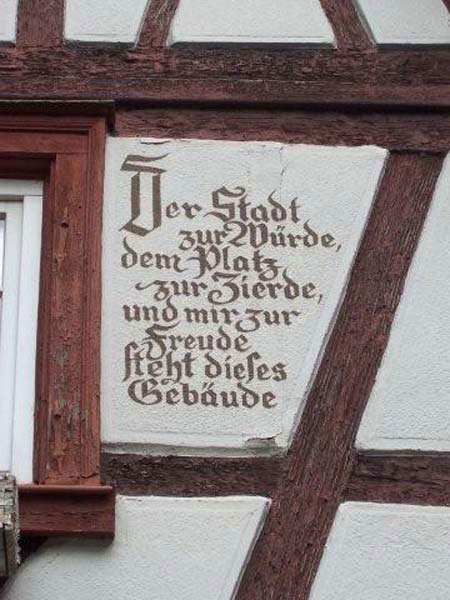 Der Stadt
zur Würde,
dem Platz
zur Zierde,
und mir zur
Freude
steht dieses
Gebäude